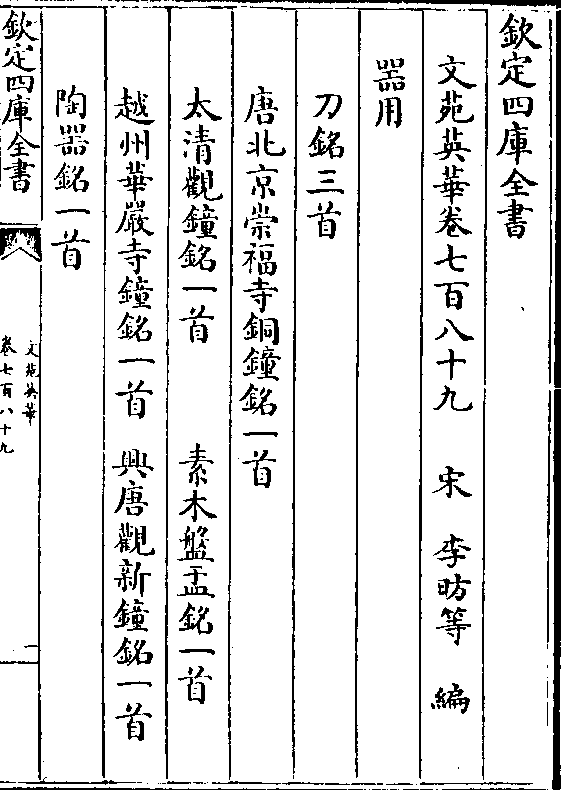 欽定四庫全書
文苑英華卷七百八十九 宋 李昉等 編
器用
刀銘三首
唐北京崇福寺銅鐘銘一首
太清觀鐘銘一首 素木盤盂銘一首
越州華嚴寺鐘銘一首 興唐觀新鐘銘一首
陶器銘一首
欽定四庫全書
文苑英華
卷七百八十九
一